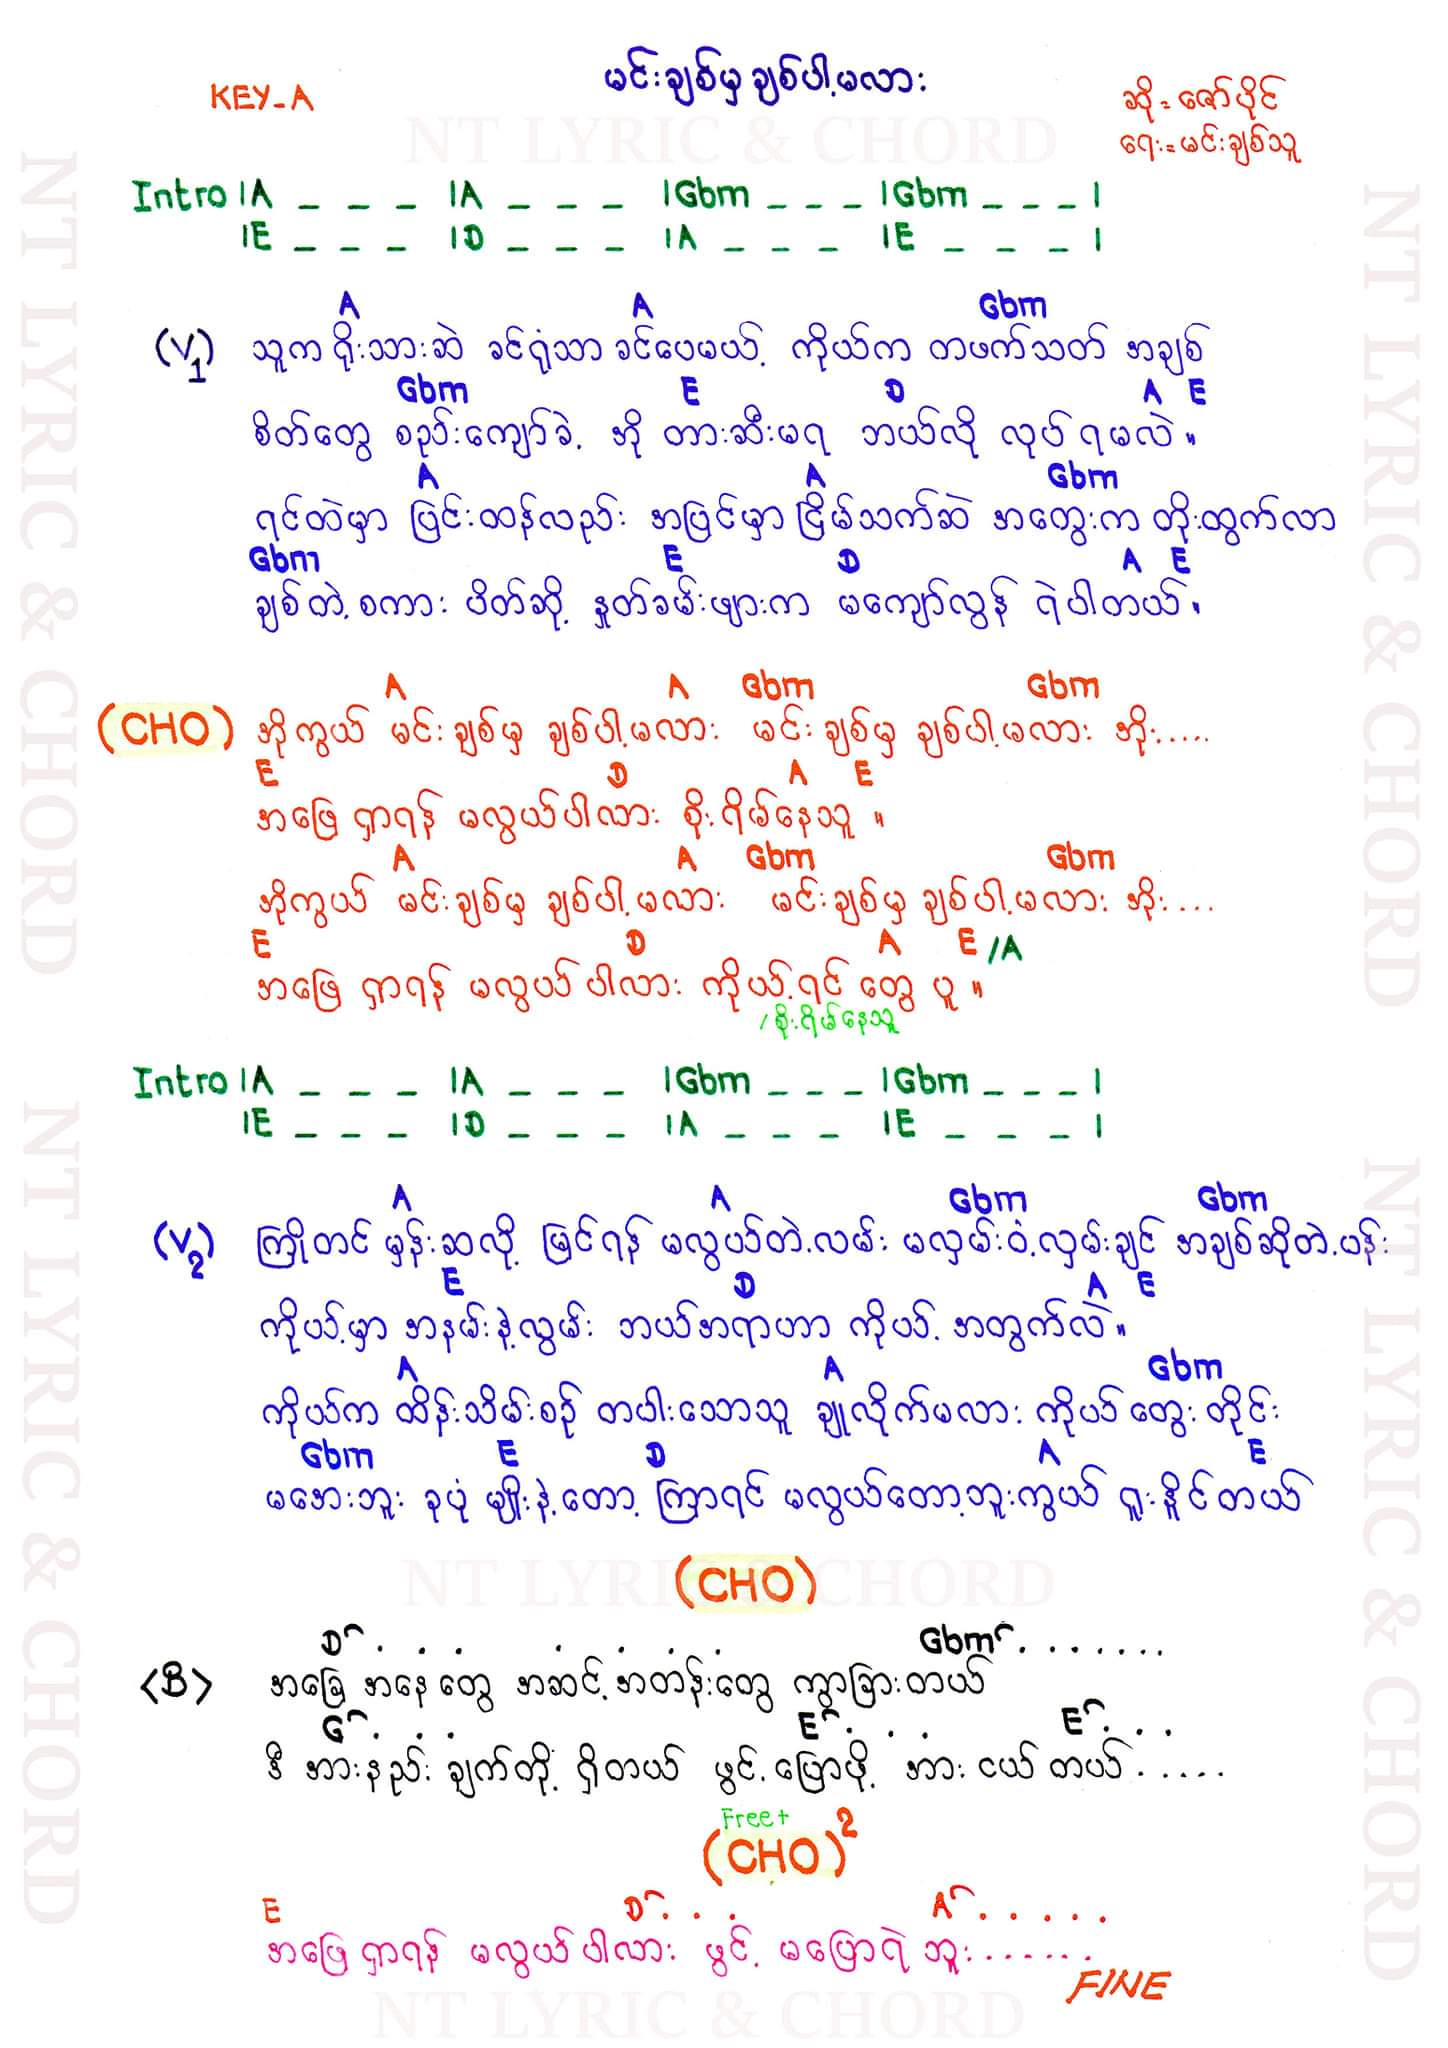 မင်းချစ်မှ ချစ်ပါ့မလား
KEY_A
ဆို = ဇော်ပိုင်
ရေး = မင်းချစ်သူ
NT LYRIC & CHORD
Intro |A _ _ _ |A _ _ _ |Gbm _ _ _ |Gbm _ _ _ |
|E _ _ _ |D _ _ _ |A _ _ _ |E _ _ _ |
A A Gbm
(V1) သူက ရိုးသားဆဲ ခင်ရုံသာ ခင်ပေမယ့် ကိုယ်က တဖက်သတ် အချစ်
Gbm E D A E
စိတ်တွေ စည်းကျော်ခဲ့ အို တားဆီးမရ ဘယ်လို လုပ်ရမလဲ။
A A Gbm
ရင်ထဲမှာ ပြင်းထန်လည်း အပြင်မှာ ငြိမ်သက်ဆဲ အတွေးက တိုးထွက်လာ
Gbm E D A E
ချစ်တဲ့ စကား ပိတ်ဆို့ နှုတ်ခမ်းဖျားက မကျော်လွန် ရဲပါတယ်။
A A Gbm Gbm
(CHO) အိုကွယ် မင်းချစ်မှ ချစ်ပါ့မလား မင်းချစ်မှ ချစ်ပါ့မလား အိုး.....
E D A E
အဖြေ ရှာရန် မလွယ်ပါလား စိုးရိမ်နေသူ ။
A A Gbm Gbm
အိုကွယ် မင်းချစ်မှ ချစ်ပါ့မလား မင်းချစ်မှ ချစ်ပါ့မလား အိုး....
E D A E /A
အဖြေ ရှာရန် မလွယ်ပါလား ကိုယ့်ရင် တွေ ပူ ။
/ စိုးရိမ်နေသူ
Intro |A _ _ _ |A _ _ _ |Gbm _ _ _ |Gbm _ _ _ |
|E _ _ _ |D _ _ _ |A _ _ _ |E _ _ _ |
A A Gbm Gbm
(V2) ကြိုတင် မှန်းဆလို့ မြင်ရန် မလွယ်တဲ့လမ်း မလှမ်းဝံ့လှမ်းချင် အချစ်ဆိုတဲ့ပန်း
E D A E
ကိုယ့်မှာ အနမ်းနဲ့လွမ်း ဘယ်အရာဟာ ကိုယ့် အတွက်လဲ။
A A Gbm
ကိုယ်က ထိန်းသိမ်းစဉ် တပါးသောသူ ချူလိုက်မလား ကိုယ် တွေး တိုင်း
Gbm E D A E
မအေးဘူး ခုပုံ မျိုးနဲ့တော့ ကြာရင် မလွယ်တော့ဘူးကွယ် ရူးနိုင်တယ်
(CHO)
NT LYRIC & CHORD
D . . . . . . . Gbm . . . . . . .
<B> အခြေ အနေ တွေ အဆင့်အတန်းတွေ ကွာခြားတယ်
G . . . E . . . E . . .
ဒီ အားနည်း ချက်တို့ ရှိတယ် ဖွင့်ပြောဖို့ အား ငယ် တယ်.....
Free+
(CHO)2
E D . . . A . . . . .
အဖြေ ရှာရန် မလွယ်ပါလား ဖွင့် မပြောရဲ ဘူး.......
FINE
NT LYRIC & CHORD
NT LYRIC & CHORD
NT LYRIC & CHORD
NT LYRIC & CHORD
NT LYRIC & CHORD